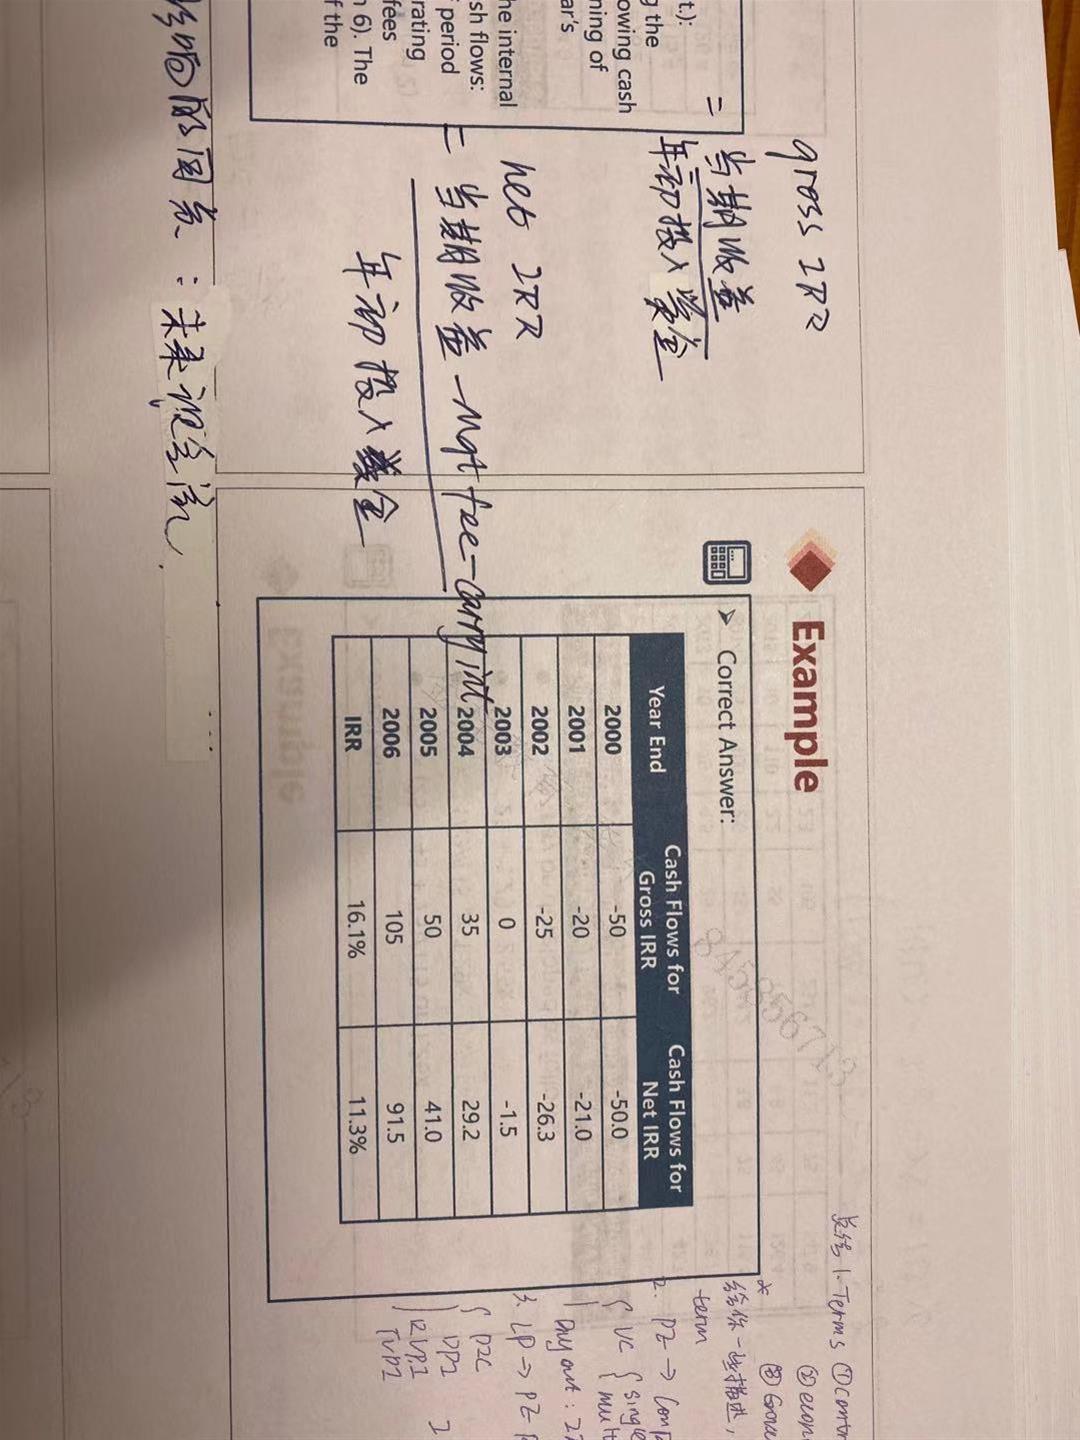 t.):
g the
owing cash
ning of
ar's
he internal
sh flows:
f period
rating
fees
n 6). The
f the
gross IRR
=
当期收益
年初投入资金
net IRR
= 当期收益 - Mgt fee - carry int
年初投入资金
影响的因素：未来现金流
Example
Correct Answer:
Year End Cash Flows for Gross IRR Cash Flows for Net IRR
2000 -50 -50.0
2001 -20 -21.0
2002 -25 -26.3
2003 0 -1.5
2004 35 29.2
2005 50 41.0
2006 105 91.5
IRR 16.1% 11.3%
845856713
总结 1. Terms ①
②econ
③
给你一些描述，
term
2. PE →
VC single
mult
Buy out :
3. LP → PE
PIC
DPI
RVPI
TVPI